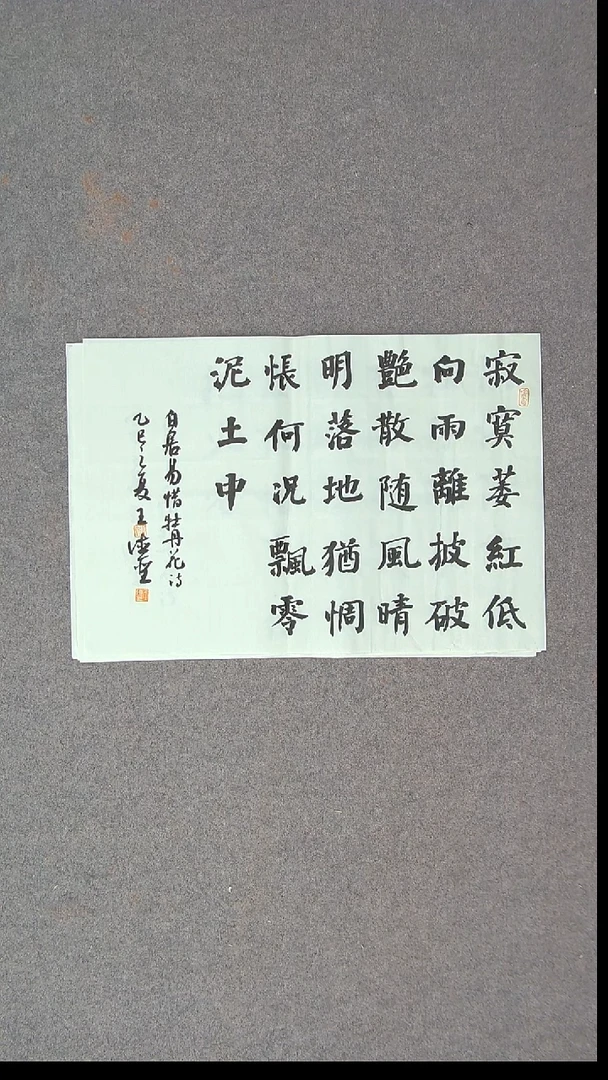 寂寞萎紅低
向雨離披破
艷散随風晴
明落地猶惆
悵何况飄零
泥土中
白居易惜牡丹花诗
乙巳之夏王